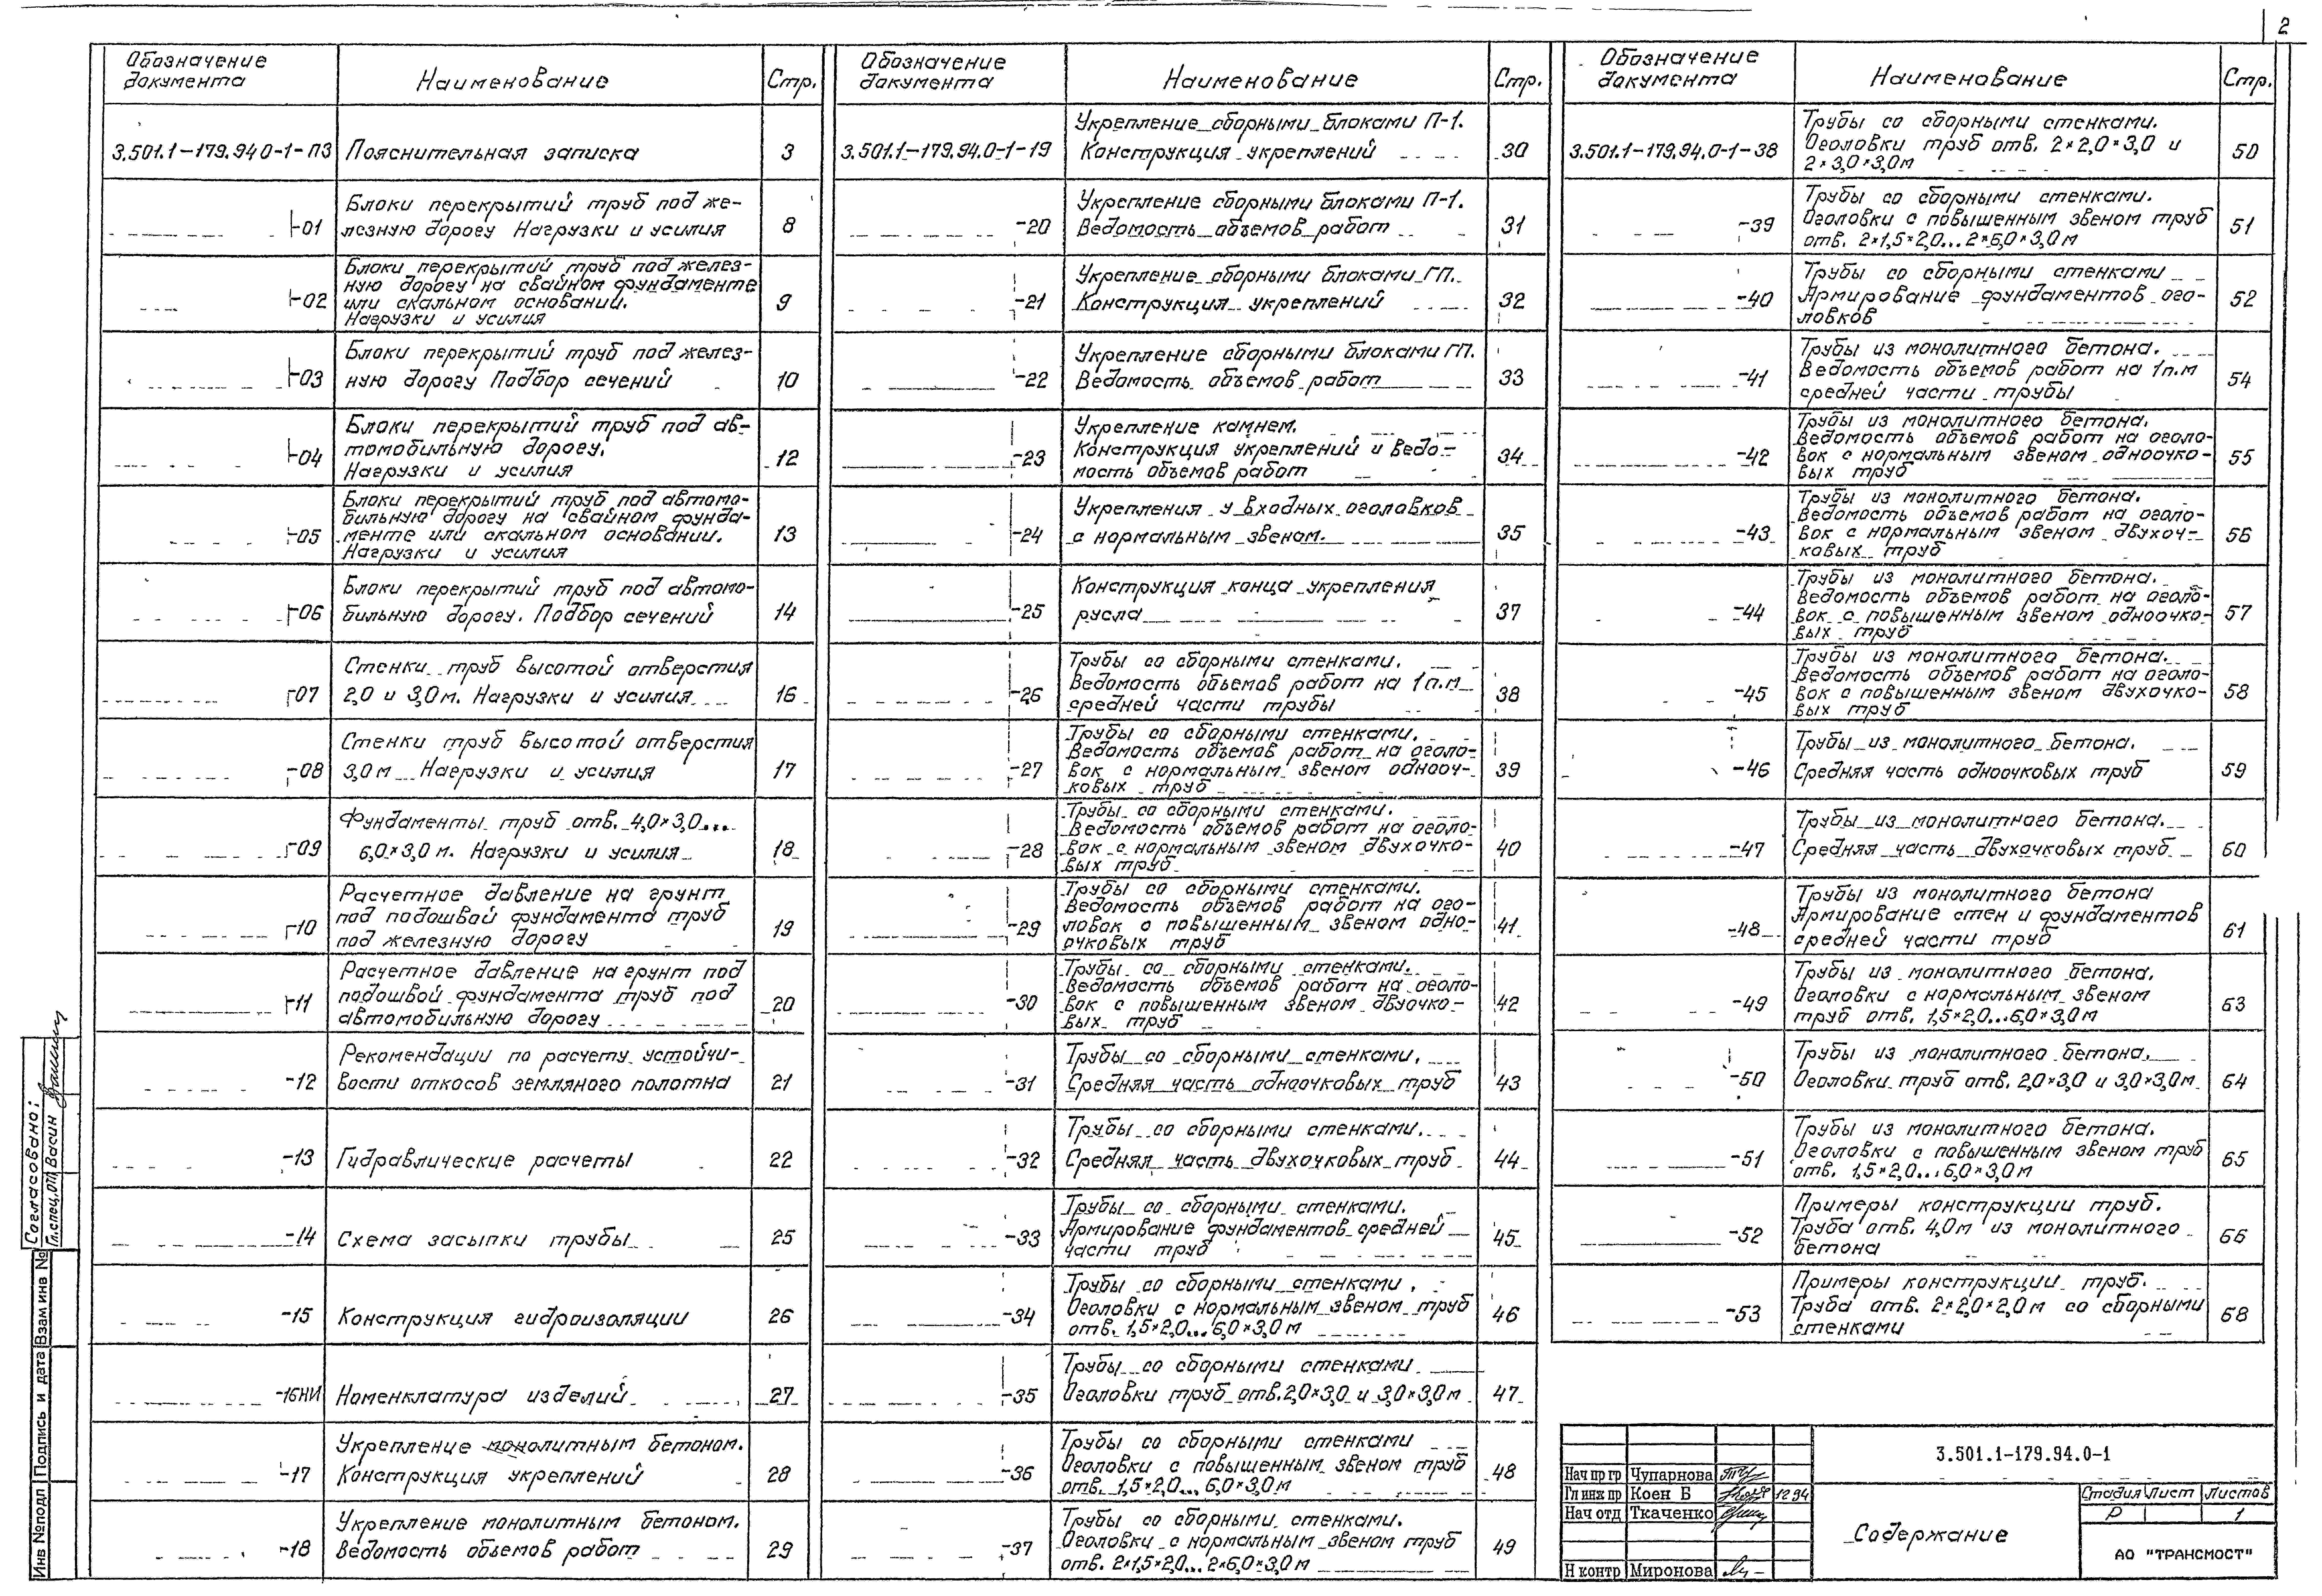 2
Обозначение
документа
Наименование
Стр.
3.501.1-179.94 0-1-ПЗ
Пояснительная записка
3
-01
Блоки перекрытий труб под же-
лезную дорогу Нагрузки и усилия
8
-02
Блоки перекрытий труб под желез-
ную дорогу на свайном фундаменте
или скальном основании.
Нагрузки и усилия
9
-03
Блоки перекрытий труб под желез-
ную дорогу Подбор сечений
10
-04
Блоки перекрытий труб под ав-
томобильную дорогу.
Нагрузки и усилия
12
-05
Блоки перекрытий труб под автомо-
бильную дорогу на свайном фунда-
менте или скальном основании.
Нагрузки и усилия
13
-06
Блоки перекрытий труб под автомо-
бильную дорогу. Подбор сечений
14
-07
Стенки труб высотой отверстия
2,0 и 3,0м. Нагрузки и усилия
16
-08
Стенки труб высотой отверстия
3,0м Нагрузки и усилия
17
-09
Фундаменты труб отв. 4,0×3,0...
6,0×3,0 м. Нагрузки и усилия
18
-10
Расчетное давление на грунт
под подошвой фундамента труб
под железную дорогу
19
-11
Расчетное давление на грунт под
подошвой фундамента труб под
автомобильную дорогу
20
-12
Рекомендации по расчету устойчи-
вости откосов земляного полотна
21
-13
Гидравлические расчеты
22
-14
Схема засыпки трубы
25
-15
Конструкция гидроизоляции
26
-16НИ
Номенклатура изделий
27
-17
Укрепление монолитным бетоном.
Конструкция укреплений
28
-18
Укрепление монолитным бетоном.
Ведомость объемов работ
29
Обозначение
документа
Наименование
Стр.
3.501.1-179.94.0-1-19
Укрепление сборными блоками П-1.
Конструкция укреплений
30
-20
Укрепление сборными блоками П-1.
Ведомость объемов работ
31
-21
Укрепление сборными блоками ГП.
Конструкция укреплений
32
-22
Укрепление сборными блоками ГП.
Ведомость объемов работ
33
-23
Укрепление камнем.
Конструкция укреплений и ведо-
мость объемов работ
34
-24
Укрепления у входных оголовков
с нормальным звеном.
35
-25
Конструкция конца укрепления
русла
37
-26
Трубы со сборными стенками.
Ведомость объемов работ на 1 п.м
средней части трубы
38
-27
Трубы со сборными стенками.
Ведомость объемов работ на оголо-
вок с нормальным звеном однооч-
ковых труб
39
-28
Трубы со сборными стенками.
Ведомость объемов работ на оголо-
вок с нормальным звеном двухочко-
вых труб
40
-29
Трубы со сборными стенками.
Ведомость объемов работ на ого-
ловок с повышенным звеном одно-
очковых труб
41
-30
Трубы со сборными стенками.
Ведомость объемов работ на оголо-
вок с повышенным звеном двуочко-
вых труб
42
-31
Трубы со сборными стенками.
Средняя часть одноочковых труб
43
-32
Трубы со сборными стенками.
Средняя часть двухочковых труб
44
-33
Трубы со сборными стенками.
Армирование фундаментов средней
части труб
45
-34
Трубы со сборными стенками.
Оголовки с нормальным звеном труб
отв. 1,5×2,0...6,0×3,0м
46
-35
Трубы со сборными стенками
Оголовки труб отв.2,0×3,0 и 3,0×3,0м
47
-36
Трубы со сборными стенками
Оголовки с повышенным звеном труб
отв. 1,5×2,0... 6,0×3,0м
48
-37
Трубы со сборными стенками.
Оголовки с нормальным звеном труб
отв. 2×1,5×2,0... 2×6,0×3,0м
49
Обозначение
документа
Наименование
Стр.
3.501.1-179.94.0-1-38
Трубы со сборными стенками.
Оголовки труб отв. 2×2,0×3,0 и
2×3,0×3,0м
50
-39
Трубы со сборными стенками.
Оголовки с повышенным звеном труб
отв. 2×1,5×2,0...2×6,0×3,0м
51
-40
Трубы со сборными стенками
Армирование фундаментов ого-
ловков
52
-41
Трубы из монолитного бетона.
Ведомость объемов работ на 1п.м
средней части трубы
54
-42
Трубы из монолитного бетона.
Ведомость объемов работ на оголо-
вок с нормальным звеном одноочко-
вых труб
55
-43
Трубы из монолитного бетона.
Ведомость объемов работ на оголо-
вок с нормальным звеном двухоч-
ковых труб
56
-44
Трубы из монолитного бетона.
Ведомость объемов работ на оголо-
вок с повышенным звеном одноочко-
вых труб
57
-45
Трубы из монолитного бетона.
Ведомость объемов работ на оголо-
вок с повышенным звеном двухочко-
вых труб
58
-46
Трубы из монолитного бетона.
Средняя часть одноочковых труб
59
-47
Трубы из монолитного бетона.
Средняя часть двухочковых труб
60
-48
Трубы из монолитного бетона
Армирование стен и фундаментов
средней части труб
61
-49
Трубы из монолитного бетона.
Оголовки с нормальным звеном
труб отв. 1,5×2,0...6,0×3,0м
63
-50
Трубы из монолитного бетона.
Оголовки труб отв. 2,0×3,0 и 3,0×3,0м
64
-51
Трубы из монолитного бетона.
Оголовки с повышенным звеном труб
отв. 1,5×2,0...6,0×3,0м
65
-52
Примеры конструкции труб.
Труба отв. 4,0м из монолитного
бетона
66
-53
Примеры конструкции труб.
Труба отв. 2×2,0×2,0м со сборными
стенками
68
Согласовано:
Гл.спец.отп Васин
Инв №подл Подпись и дата Взам инв №
Нач пр гр Чупарнова
Гл инж пр Коен Б 12 94
Нач отд Ткаченко
Н контр Миронова
3.501.1-179.94.0-1
Содержание
Стадия Лист Листов
Р 1
АО "ТРАНСМОСТ"